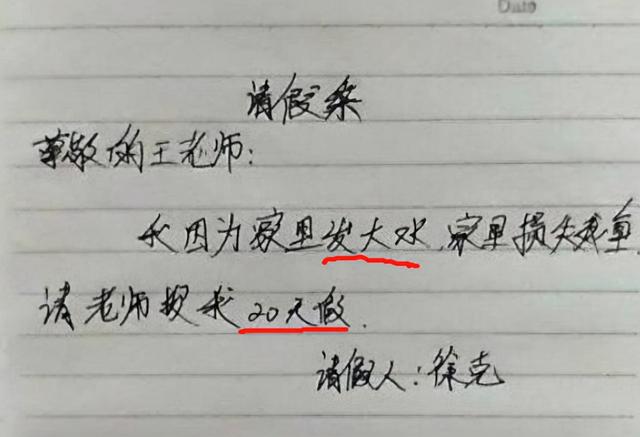 Date
请假条
尊敬的王老师:
我因为家里发大水,家里损失残重
请老师授求20天假.
请假人:徐克